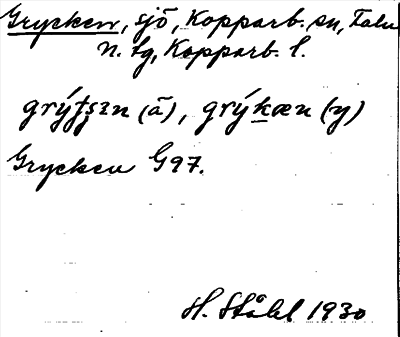 Grycken, sjö, Kopparb. sn, Falu
n. tg, Kopparb. l.
(ä), grýkæn (y)
Grycken G97.
H. Ståhl 1930